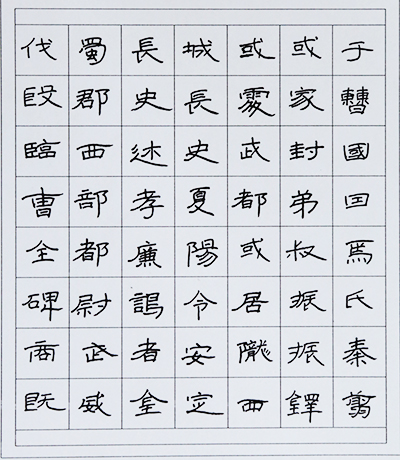 于曹國囙焉氏秦翦
或家封弟叔振振鐸
或處武都或居隴西
城長史夏陽令安定
長史述孝廉謁者金
蜀郡西部都尉武威
伐殷臨曹全碑商既